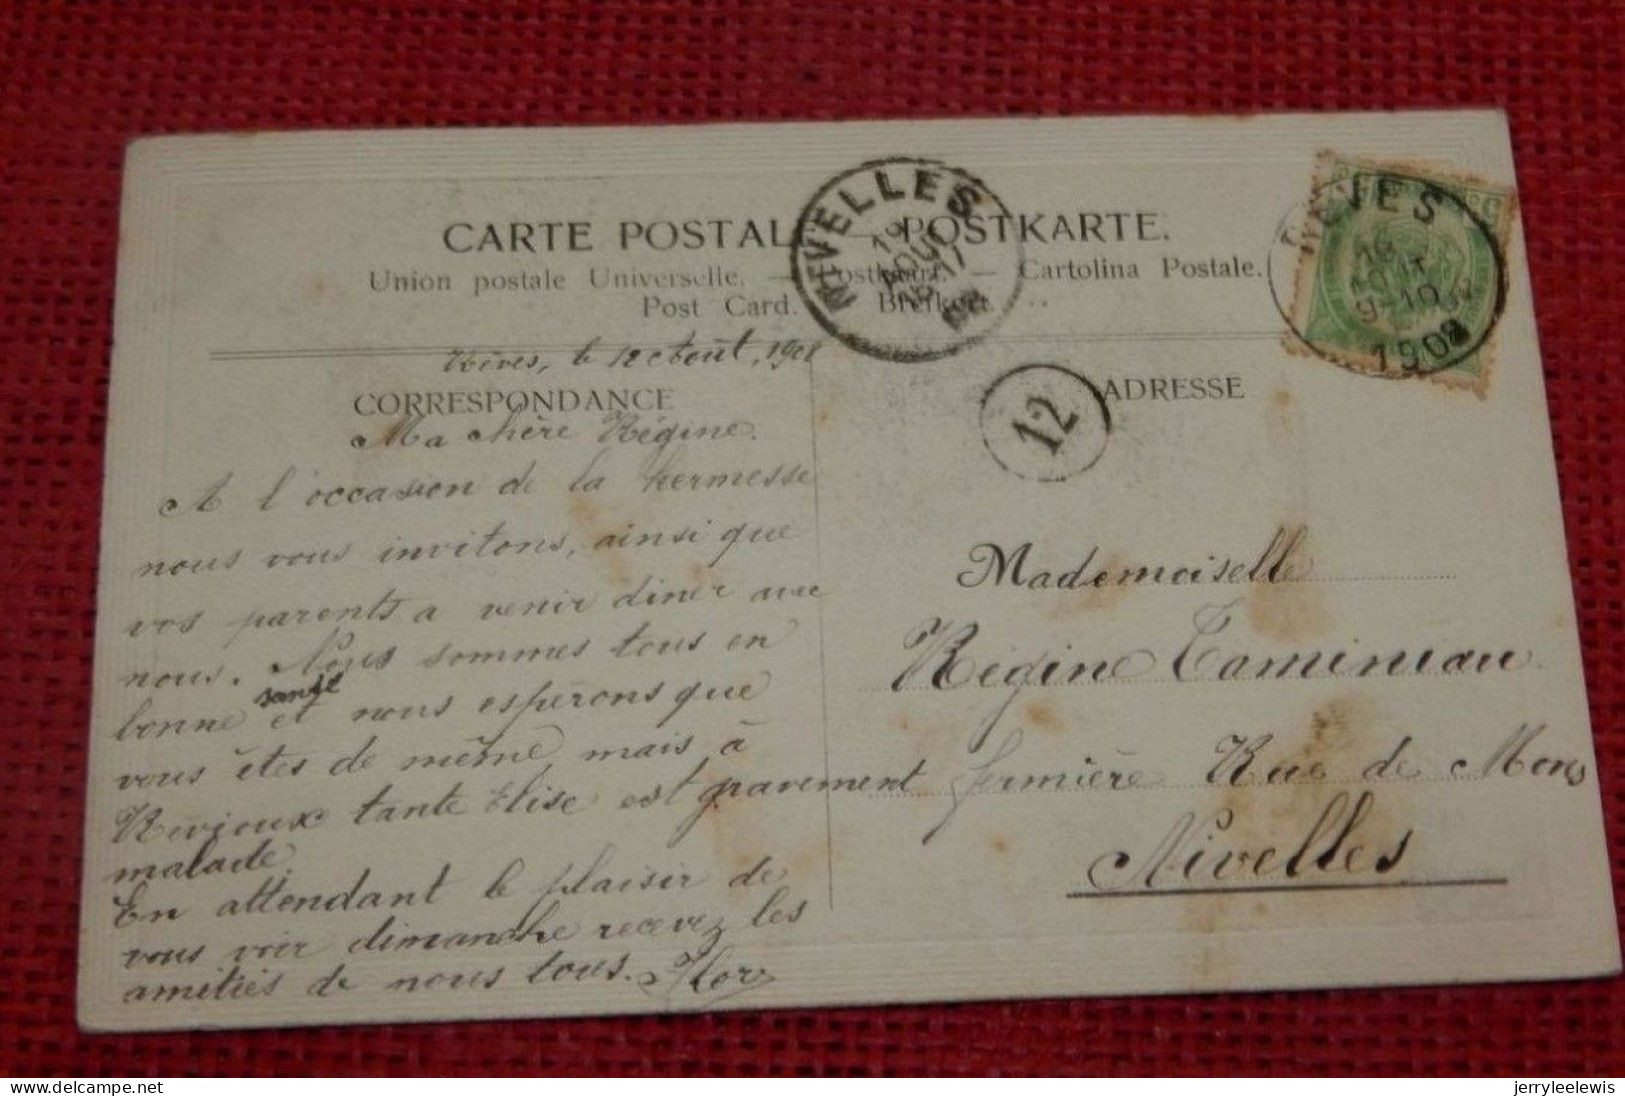 CARTE POSTALE — POSTKARTE.
Union postale Universelle. — Postkaart. — Cartolina Postale.
Post Card. Briefkaart
NIVELLES
RÈVES
9-10
1908
12
Rêves, le 12 Août, 1908
CORRESPONDANCE
ADRESSE
Ma chère Régine.
A l'occasion de la kermesse
nous vous invitons, ainsi que
vos parents a venir diner avec
nous. Nous sommes tous en
bonne santé et nous espérons que
vous êtes de même, mais à
tante Elise est gravement
malade.
En attendant le plaisir de
vous voir dimanche recevez les
amitiés de nous tous. Flore
Mademoiselle
Régine Taminiau
fermière Rue de Mons
Nivelles
jerryleelewis